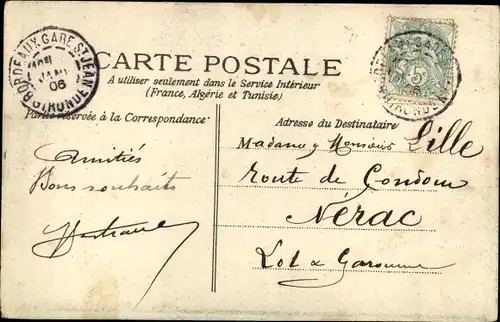 BORDEAUX GARE ST JEAN
JANV
06
GIRONDE
CARTE POSTALE
A utiliser seulement dans le Service Intérieur
(France, Algérie et Tunisie)
Partie réservée à la Correspondance
Adresse du Destinataire
5
Amitiés
Bons souhaits
Madame, Monsieur Lille
route de Condom
Nérac
Lot & Garonne